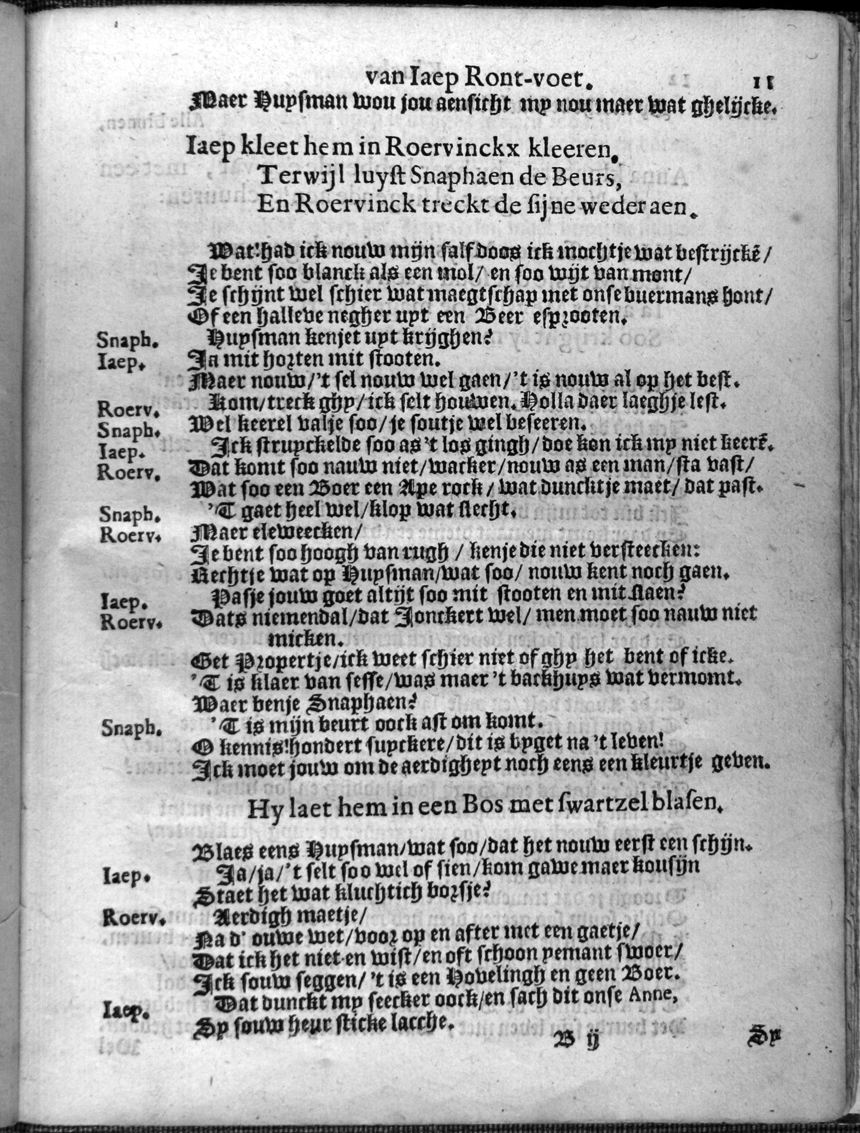 van Iaep Ront-voet. 11
Maer Huysman wou jou aensicht my nou maer wat ghelijcke.
Iaep kleet hem in Roervinckx kleeren,
Terwijl luyst Snaphaen de Beurs,
En Roervinck treckt de sijne weder aen.
Wat! had ick nouw mijn salfdoos ick mochtje wat bestrijckẽ/
Je bent soo blanck als een mol/ en soo wijt van mont/
Je schijnt wel schier wat maegtschap met onse buermans hont/
Of een halleve negher uyt een Beer esprooten.
Snaph. Huysman kenjet uyt krijghen?
Iaep. Ja mit horten mit stooten.
Maer nouw/'t sel nouw wel gaen/'t is nouw al op het best.
Roerv. Kom/treck ghy/ick selt houwen. Holla daer laeghje lest.
Snaph. Wel keerel valje soo/je soutje wel beseeren.
Iaep. Ick struyckelde soo as 't los gingh/doe kon ick my niet keerẽ.
Roerv. Dat komt soo nauw niet/wacker/nouw as een man/sta vast/
Wat soo een Boer een Ape rock/ wat duncktje maet/ dat past.
Snaph. 'T gaet heel wel/klop wat slecht.
Roerv. Maer eleweecken/
Je bent soo hoogh van rugh/ kenje die niet versteecken:
Rechtje wat op Huysman/wat soo/ nouw kent noch gaen.
Iaep. Pasje jouw goet altijt soo mit stooten en mit slaen?
Roerv. Dats niemendal/dat Jonckert wel/ men moet soo nauw niet
micken.
Get Propertje/ick weet schier niet of ghy het bent of icke.
'T is klaer van sesse/was maer 't backhuys wat vermomt.
Waer benje Snaphaen?
Snaph. 'T is mijn beurt oock ast om komt.
O kennis! hondert suyckere/dit is byget na 't leven!
Ick moet jouw om de aerdigheyt noch eens een kleurtje geven.
Hy laet hem in een Bos met swartzel blasen.
Blaes eens Huysman/wat soo/dat het nouw eerst een schijn.
Iaep. Ja/ja/'t selt soo wel of sien/kom gawe maer kousijn
Staet het wat kluchtich borsje?
Roerv. Aerdigh maetje/
Na d' ouwe wet/voor op en after met een gaetje/
Dat ick het niet en wist/en oft schoon yemant swoer/
Ick souw seggen/ 't is een Hovelingh en geen Boer.
Iaep. Dat dunckt my seecker oock/en sach dit onse Anne,
Sy souw heur sticke lacche.
B ij Sy